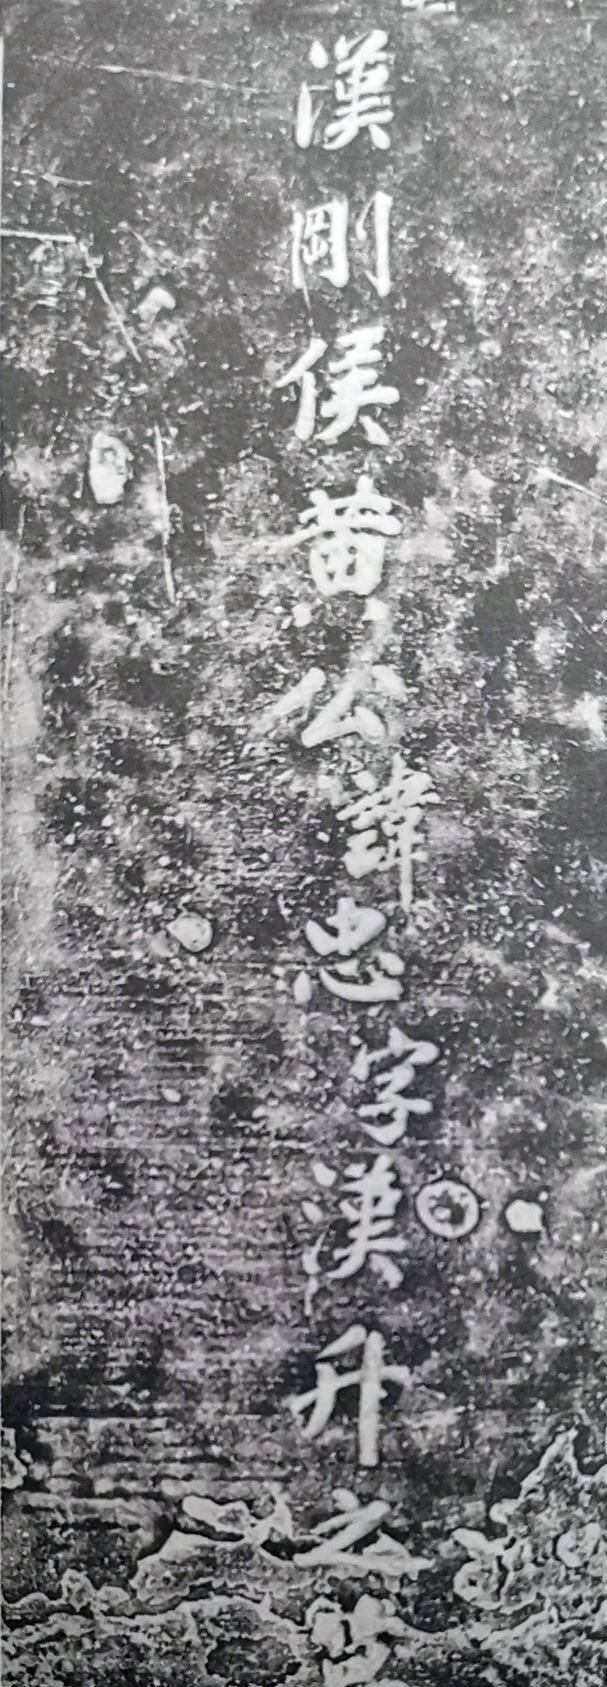 漢剛侯黃公諱忠字漢升之